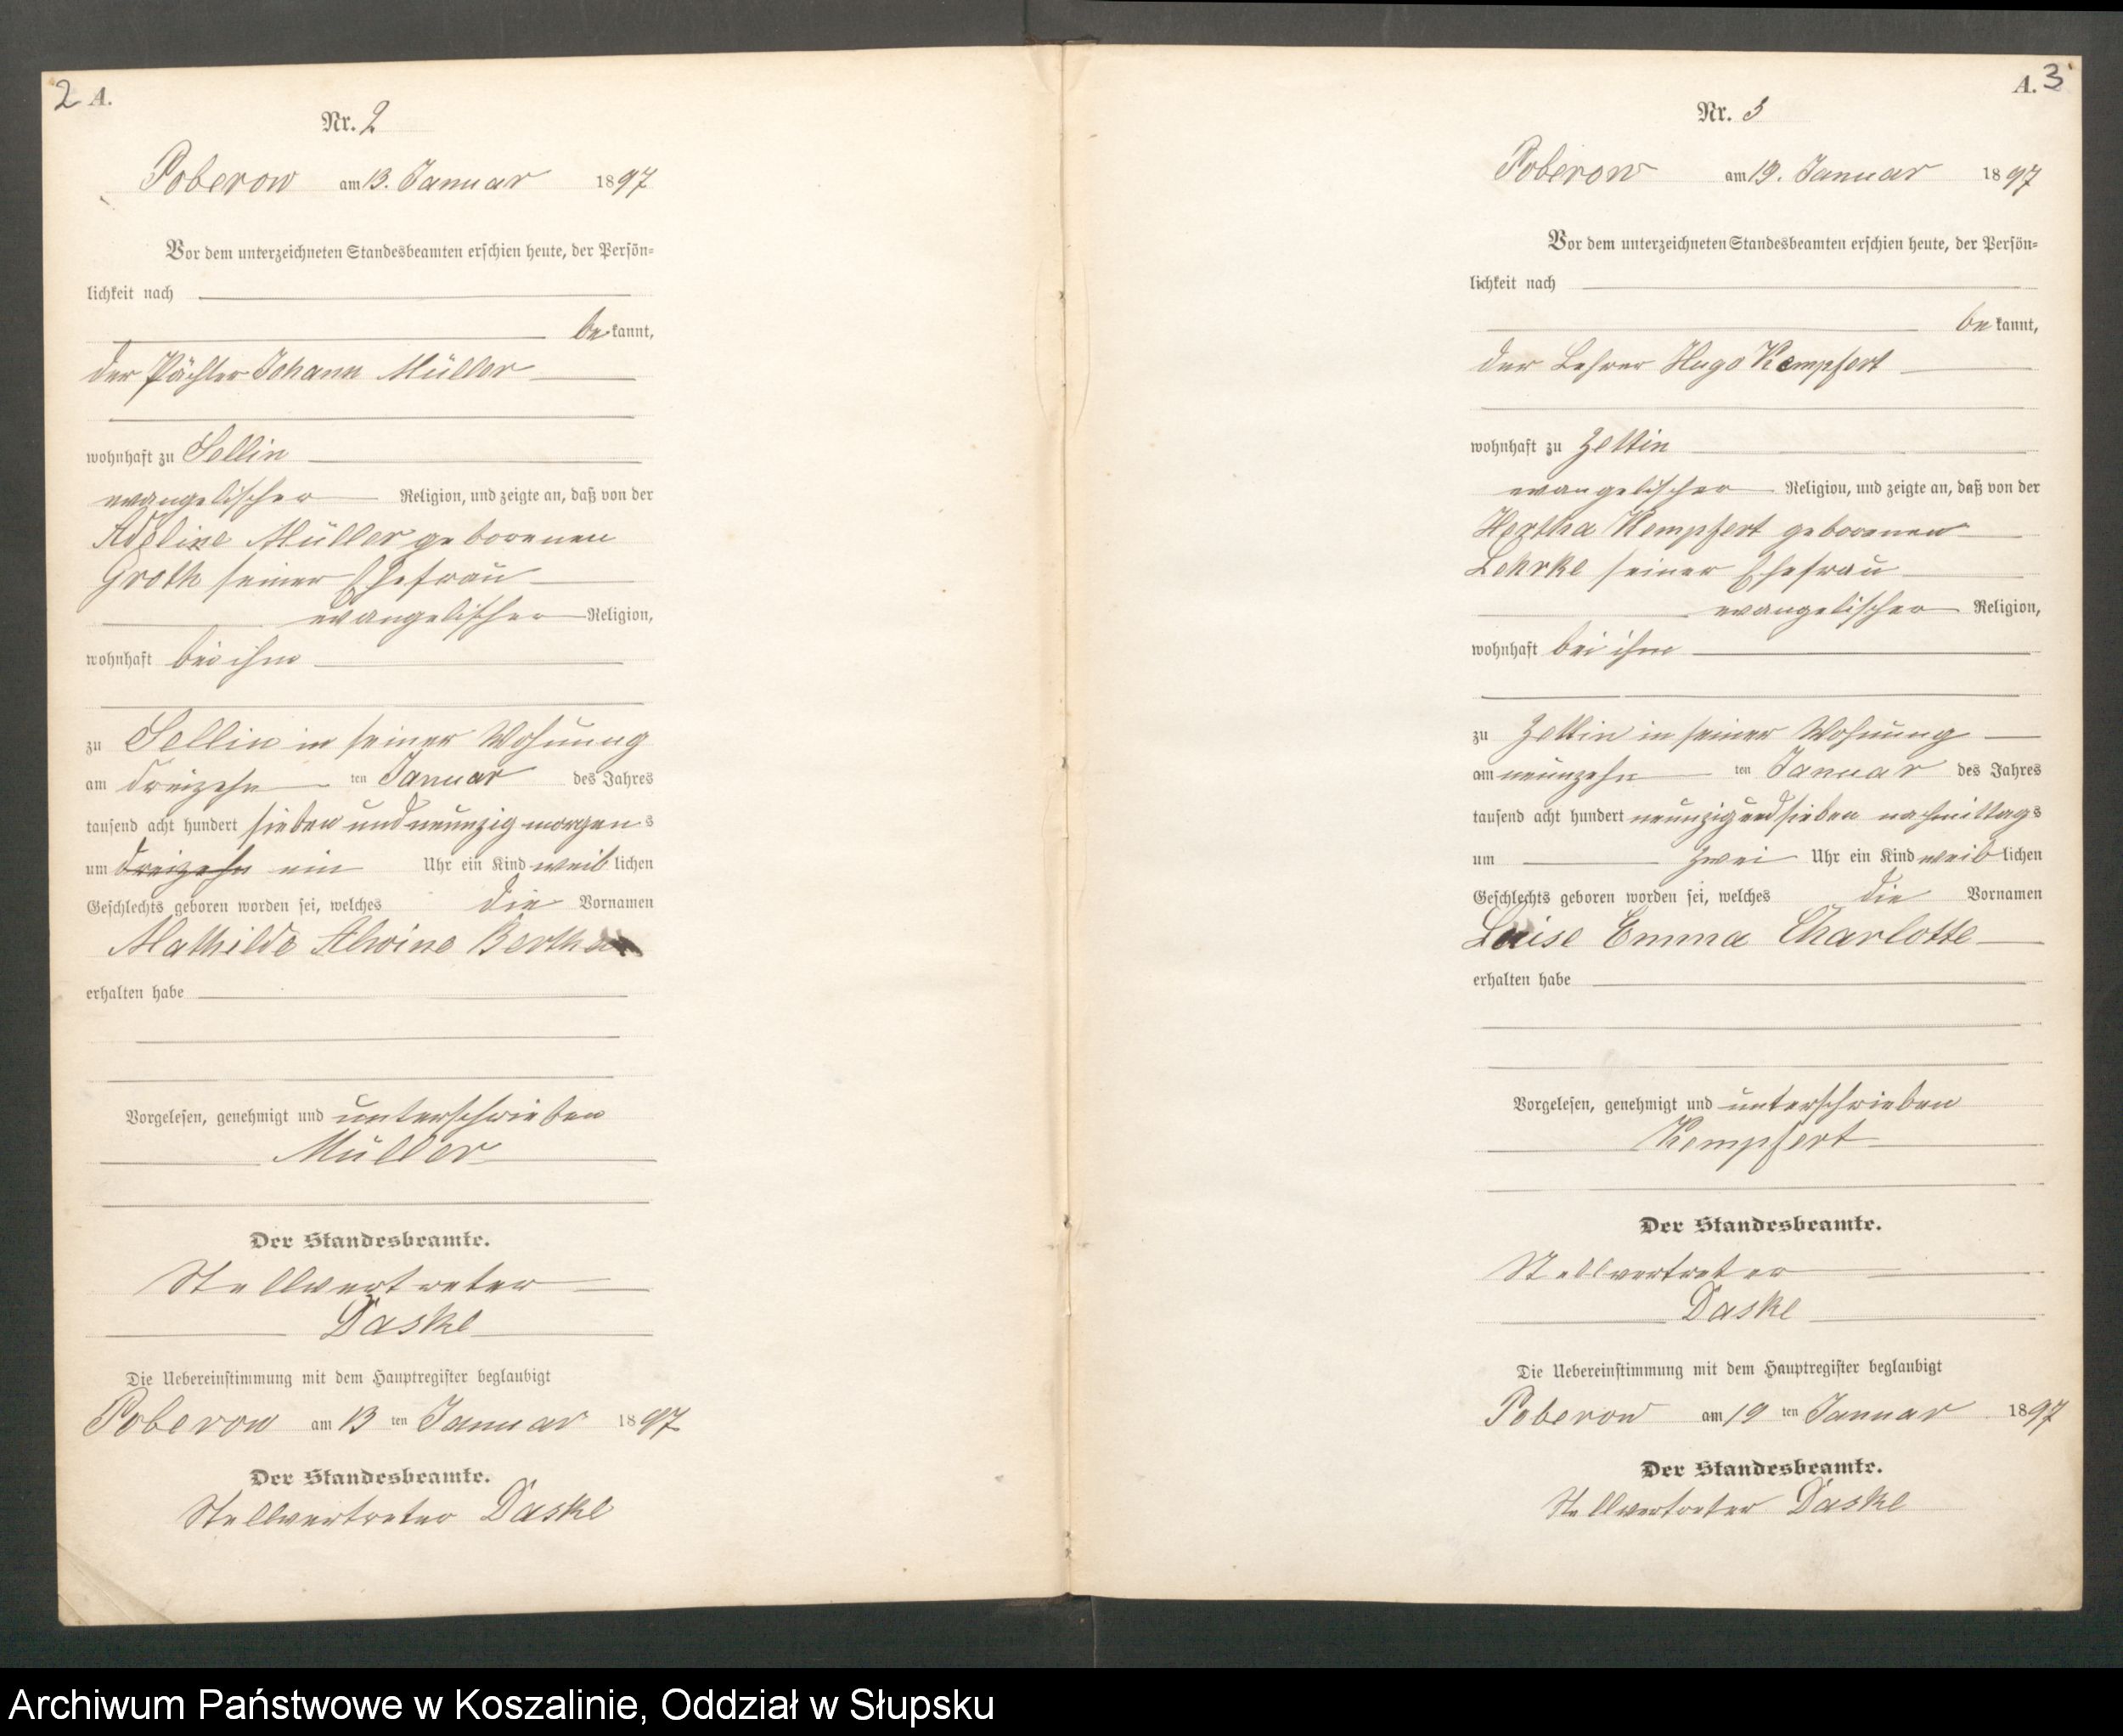 2 A.
Nr. 2
Poberow am 13. Januar 1897
Vor dem unterzeichneten Standesbeamten erschien heute, der Persön-
lichkeit nach
be kannt,
der Pächter Johann Müller
wohnhaft zu Sellin
evangelischer Religion, und zeigte an, daß von der
Adeline Müller geborenen
Groth seiner Ehefrau
evangelischer Religion,
wohnhaft bei ihm
zu Sellin in seiner Wohnung
am dreizehn ten Januar des Jahres
tausend acht hundert sieben und neunzig morgens
um dreizehn ein Uhr ein Kind weiblichen
Geschlechts geboren worden sei, welches die Vornamen
Mathilde Alwine Bertha
erhalten habe
Vorgelesen, genehmigt und unterschrieben
Müller
Der Standesbeamte.
Stellvertreter
Daske
Die Uebereinstimmung mit dem Hauptregister beglaubigt
Poberow am 13 ten Januar 1897
Der Standesbeamte.
Stellvertreter Daske
A. 3
Nr. 3
Poberow am 19. Januar 1897
Vor dem unterzeichneten Standesbeamten erschien heute, der Persön-
lichkeit nach
be kannt,
der Lehrer Hugo Kempfert
wohnhaft zu Zettin
evangelischer Religion, und zeigte an, daß von der
Hertha Kempfert geborenen
Lehrke seiner Ehefrau
evangelischer Religion,
wohnhaft bei ihm
zu Zettin in seiner Wohnung
am neunzehn ten Januar des Jahres
tausend acht hundert neunzig und sieben nachmittags
um zwei Uhr ein Kind weiblichen
Geschlechts geboren worden sei, welches die Vornamen
Luise Emma Charlotte
erhalten habe
Vorgelesen, genehmigt und unterschrieben
Kempfert
Der Standesbeamte.
Stellvertreter
Daske
Die Uebereinstimmung mit dem Hauptregister beglaubigt
Poberow am 19 ten Januar 1897
Der Standesbeamte.
Stellvertreter Daske
Archiwum Państwowe w Koszalinie, Oddział w Słupsku